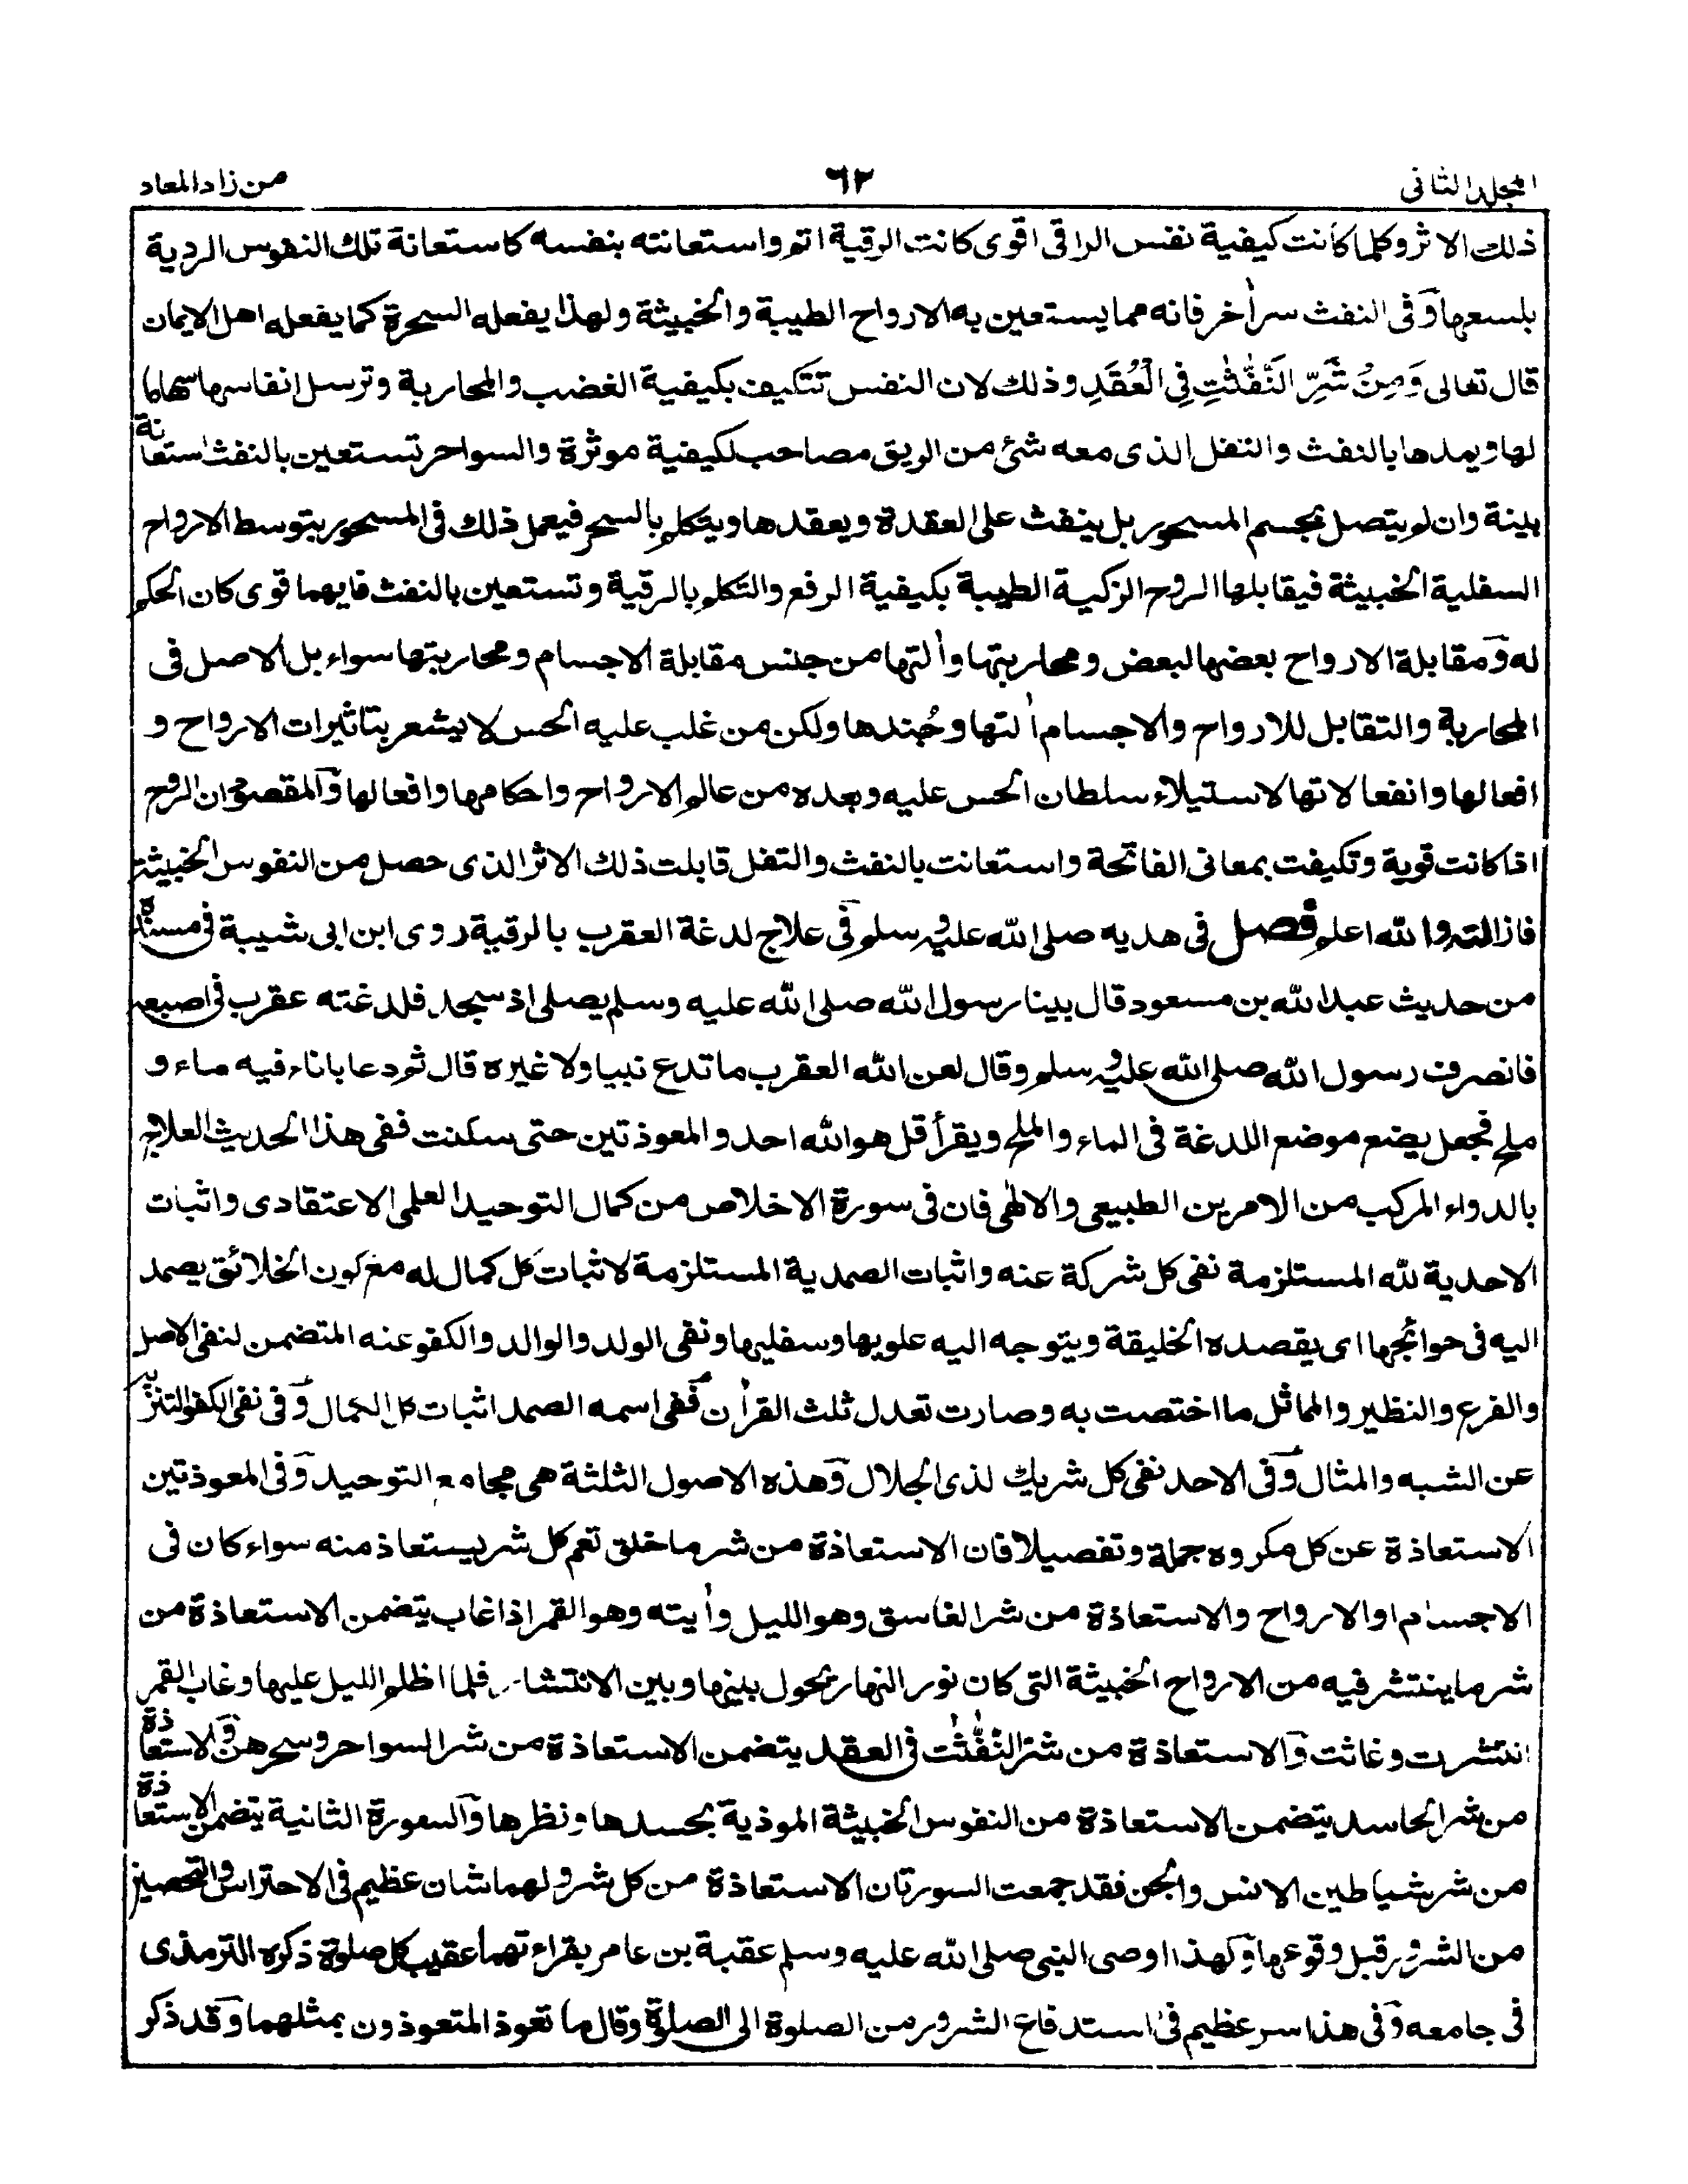 المجلد الثانی ٦٢ من زاد المعاد
ذلك الاثر وكلما كانت كيفية نفس الراقی اقوی كانت الرقية اتم واستعانته بنفسه كاستعانة تلك النفوس الردية
بلسعها وفی النفث سر اٰخر فانه مما يستعين به الارواح الطيبة والخبيثة ولهذا يفعله السحرة كما يفعله اهل الايمان
قال تعالی وَمِنْ شَرِّ النَّفّٰثٰتِ فِی الْعُقَدِ وذلك لان النفس تتكيف بكيفية الغضب والمحاربة وترسل انفاسها سهاما
لها ويمدها بالنفث والتفل الذی معه شئ من الريق مصاحب لكيفية موثرة والسواحر تستعين بالنفث استعانة
بينة وان لم يتصل بجسم المسحور بل ينفث علی العقدة ويعقدها ويتكلم بالسحر فيعمل ذلك فی المسحور بتوسط الارواح
السفلية الخبيثة فيقابلها الروح الزكية الطيبة بكيفية الرفع والتكلم بالرقية وتستعين بالنفث فايهما قوی كان الحكم
له ومقابلة الارواح بعضها لبعض ومحاربتها واٰلتها من جنس مقابلة الاجسام ومحاربتها سواء بل الاصل فی
المحاربة والتقابل للارواح والاجسام اٰلتها وجُندها ولكن من غلب عليه الحس لا يشعر بتاثيرات الارواح و
افعالها وانفعالاتها لاستيلاء سلطان الحس عليه وبعده من عالم الارواح واحكامها وافعالها والمقصود ان الروح
اذا كانت قوية وتكيفت بمعانی الفاتحة واستعانت بالنفث والتفل قابلت ذلك الاثر الذی حصل من النفوس الخبيثة
فازالته والله اعلم فصل فی هديه صلی الله عليه وسلم فی علاج لدغة العقرب بالرقية روی ابن ابی شيبة فی مسنده
من حديث عبد الله بن مسعود قال بينا رسول الله صلی الله عليه وسلم يصلی اذ سجد فلدغته عقرب فی اصبعه
فانصرف رسول الله صلی الله عليه وسلم وقال لعن الله العقرب ما تدع نبيا ولا غيره قال ثم دعا باناء فيه ماء و
ملح فجعل يضع موضع اللدغة فی الماء والملح ويقرأ قل هو الله احد والمعوذتين حتی سكنت ففی هذا الحديث العلاج
بالدواء المركب من الامرين الطبيعی والالٰهی فان فی سورة الاخلاص من كمال التوحيد العلمی الاعتقادی واثبات
الاحدية لله المستلزمة نفی كل شركة عنه واثبات الصمدية المستلزمة لاثبات كل كمال له مع كون الخلائق يصمد
اليه فی حوائجها ای يقصده الخليقة ويتوجه اليه علويها وسفليها ونفی الولد والوالد والكفو عنه المتضمن لنفی الاصل
والفرع والنظير والمماثل ما اختصت به وصارت تعدل ثلث القراٰن ففی اسمه الصمد اثبات كل الكمال وفی نفی الكفو التنزيه
عن الشبه والمثال وفی الاحد نفی كل شريك لذی الجلال وهذه الاصول الثلثة هی مجامع التوحيد وفی المعوذتين
الاستعاذة عن كل مكروه جملة وتفصيلا فان الاستعاذة من شر ما خلق تعم كل شر يستعاذ منه سواء كان فی
الاجسام او الارواح والاستعاذة من شر الغاسق وهو الليل واٰيته وهو القمر اذا غاب يتضمن الاستعاذة من
شر ما ينتشر فيه من الارواح الخبيثة التی كان نور النهار يحول بينها وبين الانتشار فلما اظلم الليل عليها وغاب القمر
انتشرت وغاثت والاستعاذة من شر النفّٰثٰت فی العقد يتضمن الاستعاذة من شر السواحر وسحرهن والاستعاذة
من شر الحاسد يتضمن الاستعاذة من النفوس الخبيثة الموذية بحسدها ونظرها والسعورة الثانية يتضمن الاستعاذة
من شر شياطين الانس والجن فقد جمعت السورتان الاستعاذة من كل شر ولهما شان عظيم فی الاحتراس والتحصين
من الشرور قبل وقوعها وكهذا اوصی النبی صلی الله عليه وسلم عقبة بن عامر بقراءتهما عقيب كل صلوة ذكره الترمذی
فی جامعه وفی هذا سر عظيم فی استدفاع الشرور من الصلوة الی الصلوة وقال ما تعوذ المتعوذون بمثلهما وقد ذكر